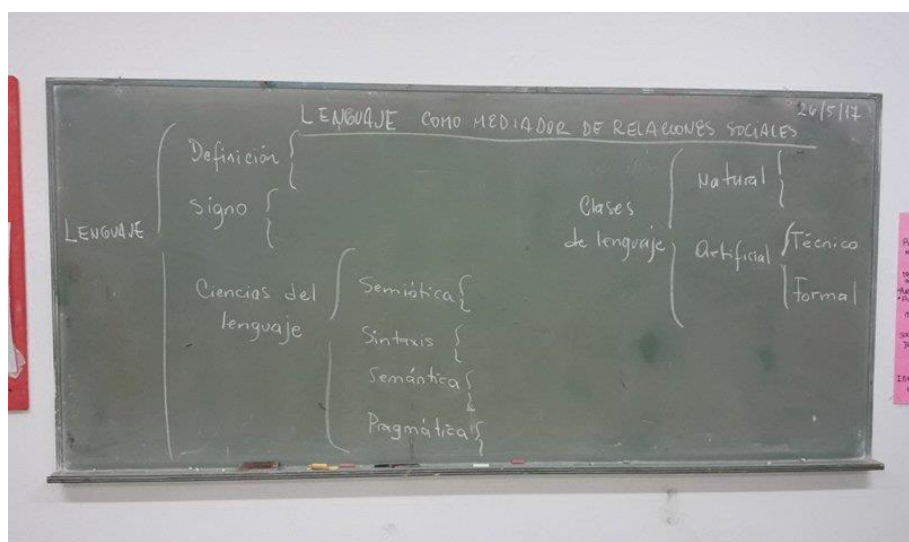 LENGUAJE COMO MEDIADOR DE RELACIONES SOCIALES
26/5/17
LENGUAJE
Definición
Signo
Ciencias del
lenguaje
Semiótica
Sintaxis
Semántica
Pragmática
Clases
de lenguaje
Natural
Artificial
Técnico
Formal